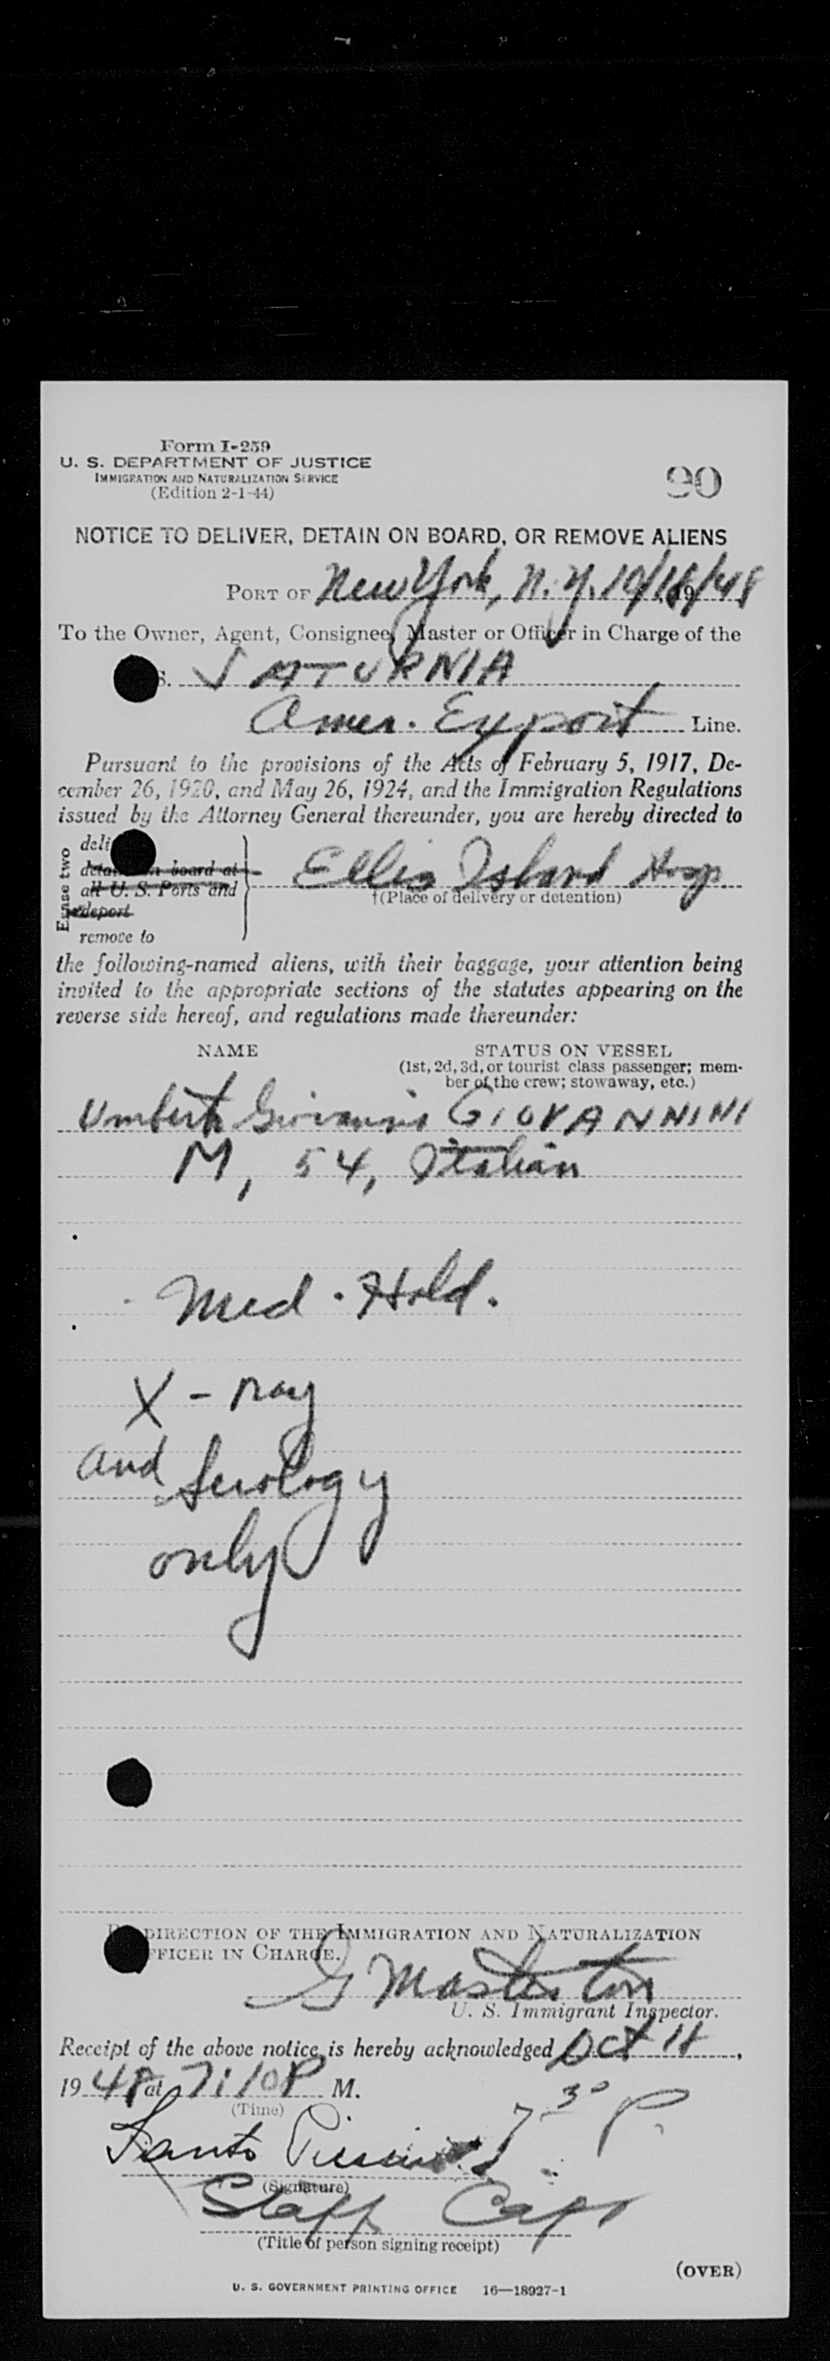 Form I-259
U. S. DEPARTMENT OF JUSTICE
IMMIGRATION AND NATURALIZATION SERVICE
(Edition 2-1-44)
90
NOTICE TO DELIVER, DETAIN ON BOARD, OR REMOVE ALIENS
PORT OF New York, N.Y. 10/18/48
To the Owner, Agent, Consignee, Master or Officer in Charge of the
S. SATURNIA
Amer. Export Line.
Pursuant to the provisions of the Acts of February 5, 1917, De-
cember 26, 1920, and May 26, 1924, and the Immigration Regulations
issued by the Attorney General thereunder, you are hereby directed to
Erase two
deli
detain on board at
all U. S. Ports and
deport
remove to
Ellis Island Hosp
†(Place of delivery or detention)
the following-named aliens, with their baggage, your attention being
invited to the appropriate sections of the statutes appearing on the
reverse side hereof, and regulations made thereunder:
NAME STATUS ON VESSEL
(1st, 2d, 3d, or tourist class passenger; mem-
ber of the crew; stowaway, etc.)
Umberto Giovannis GIOVANNINI
M, 54, Italian
Med. Hold.
X-ray
and Serology
only
DIRECTION OF THE IMMIGRATION AND NATURALIZATION
FFICER IN CHARGE.
G Masterton
U. S. Immigrant Inspector.
Receipt of the above notice is hereby acknowledged Oct 18,
1948 at 7:10 P M.
(Time)
7 30 P.
Santo
(Signature)
Staff Capt
(Title of person signing receipt)
(OVER)
U. S. GOVERNMENT PRINTING OFFICE 16—18927-1